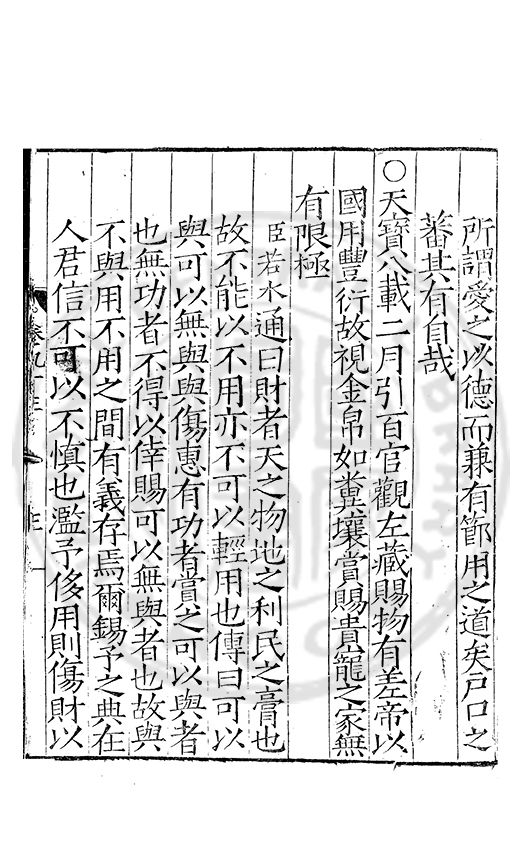 所謂愛之以德而兼有節用之道矣戶口之
蕃其有自哉
○天寶八載二月引百官觀左藏賜物有差帝以
國用豐衍故視金帛如糞壤賞賜貴寵之家無
有限極
臣若水通曰財者天之物地之利民之膏也
故不能以不用亦不可以輕用也傳曰可以
與可以無與與傷惠有功者賞之可以與者
也無功者不得以倖賜可以無與者也故與
不與用不用之間有義存焉爾錫予之典在
人君信不可以不慎也濫予侈用則傷財以